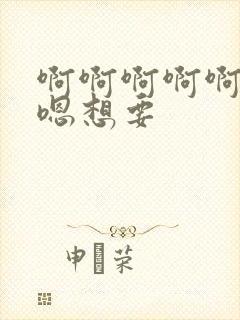 啊啊啊啊啊
嗯想要
申 荣